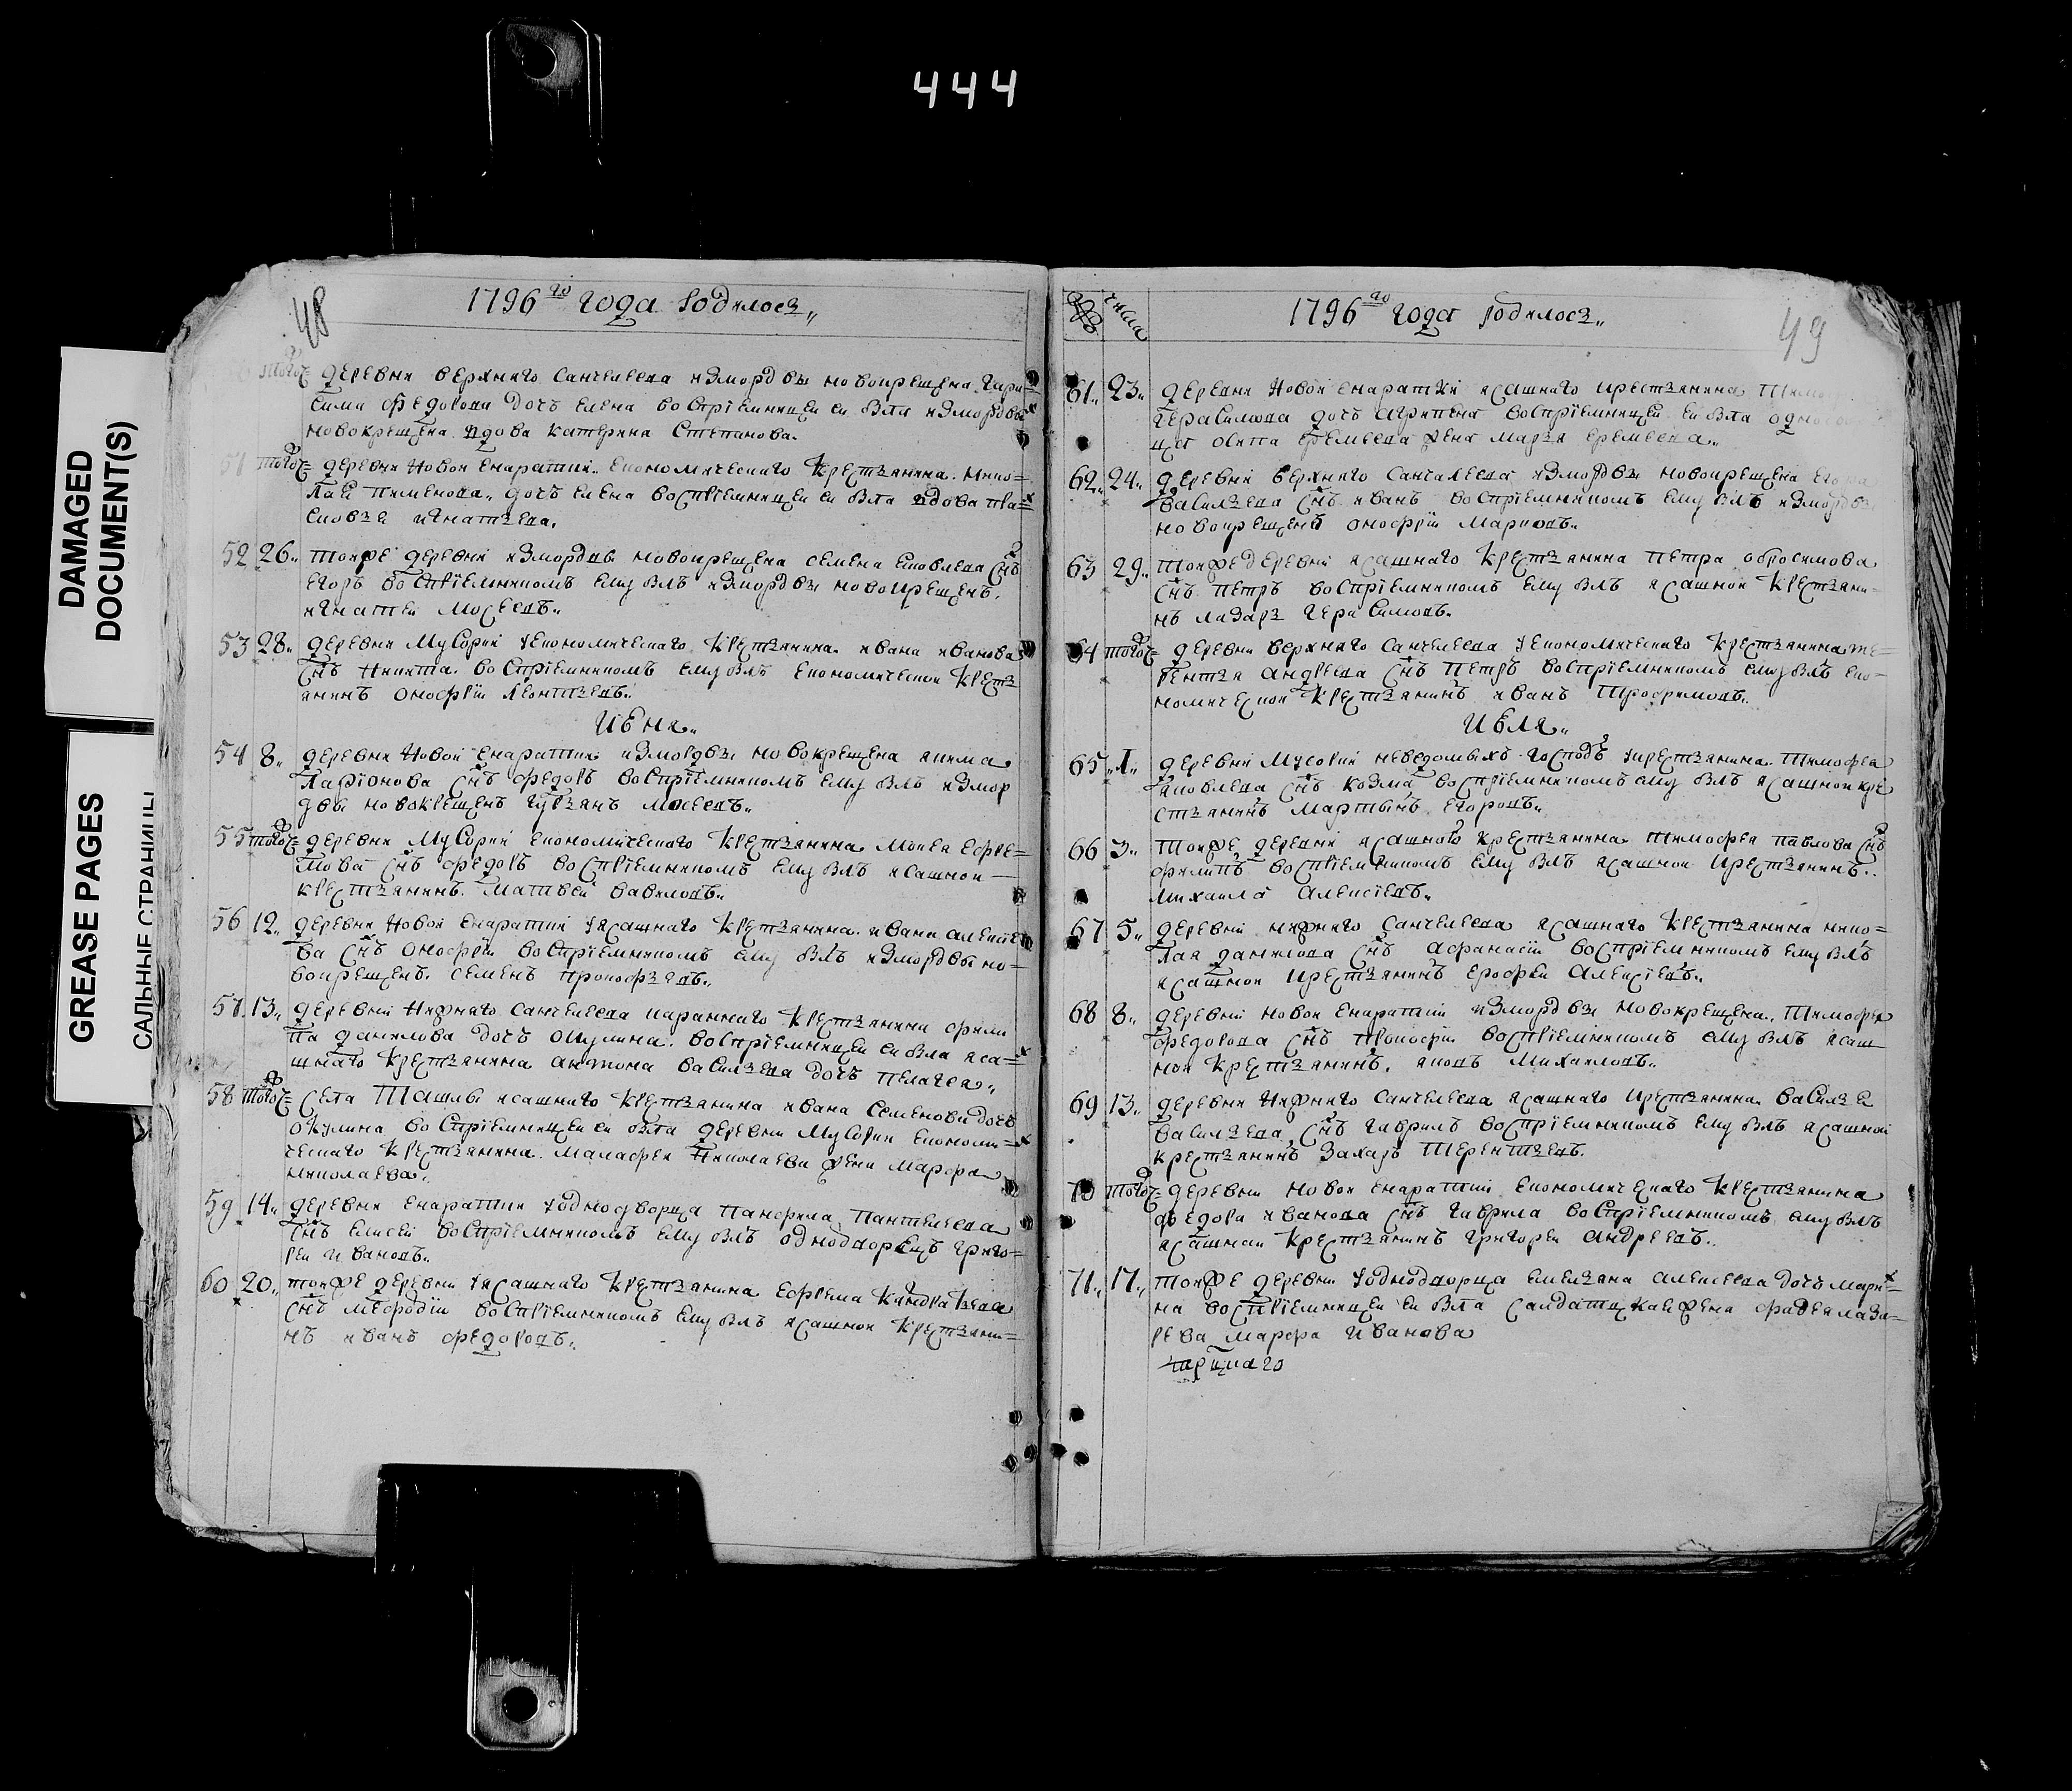 444
DAMAGED
DOCUMENT(S)
GREASE PAGES
САЛЬНЫЕ СТРАНИЦЫ
48
1796го года родилось
того ж деревни верхняго Санчелеева измордвы новокрещена
Федорова дочь елена восприемницеи еи была измордвы
новокрещена вдова катерина Степанова.
51 того ж деревни Новои Енаратки економическаго крестьянина нико=
лая пименова дочь елена восприемницеи еи была вдова пра=
сковья игнатьева.
52 26 тоиже деревни измордвы новокрещена семена яковлева снъ
егоръ восприемникомъ ему былъ измордвы новокрещенъ
игнатеи мосеевъ.
53 28 деревни Мусорки економическаго крестьянина ивана иванова
снъ никита восприемникомъ ему былъ економическои крестъ
янинъ оноѳріи леонтьевъ.
Июня
54 8 деревни Новои Енаратки измордвы новокрещена якима
ларіонова снъ федоръ восприемникомъ ему былъ измор
двы новокрещенъ мосеевъ.
55 того ж деревни Мусорки економическаго крестьянина ефре=
мова снъ федоръ восприемникомъ ему былъ ясашнои
крестьянинъ матвеи вавиловъ.
56 12 деревни Новои Енаратки ясашнаго крестьянина ивана алексие
ва снъ оноѳріи восприемникомъ ему былъ измордвы но=
вокрещенъ семенъ прокофьевъ.
57 13 деревни Нижняго Санчелеева крестьянина фили
па данилова дочь окулина восприемницеи еи была яса=
шнаго крестьянина антона васильева дочь пелагея
58 того ж Села Ташлы ясашнаго крестьянина ивана Семенова дочь
окулина восприемницеи еи была деревни Мусорки економи=
ческаго крестьянина малафея николаева жена марфа
николаева.
59 14 деревни енаратки однодворца панфила пантелеева
снъ елисеи восприемникомъ ему былъ однодворецъ григо=
реи ивановъ.
60 20 тоиже деревни ясашнаго крестьянина ефрема кандратьева
снъ меѳодіи восприемникомъ ему былъ ясашнои крестьяни=
нъ иванъ федоровъ.
числа
1796го года родилось
49
61 23 деревни Новои енаратки ясашнаго крестьянина
герасимова дочь агрипена восприемницеи еи была
осипа еремеева жена марья еремеева
62 24 деревни верхняго Санчелеева измордвы новокрещена егора
васильева снъ иванъ восприемникомъ ему былъ измордвы
новокрещенъ оноѳріи марковъ.
63 29 тоиже деревни ясашнаго крестьянина петра обросимова
снъ петръ восприемникомъ ему былъ ясашнои крестьяни=
нъ лазарь герасимовъ.
64 того ж деревни верхняго Санчелеева економическаго крестьянина те=
рентья андреева снъ петръ восприемникомъ ему былъ еко=
номическои крестьянинъ иванъ трофимовъ.
Июля
65 1 деревни Мусорки неведомыхъ господъ крестьянина тимофея
яковлева снъ козма восприемникомъ ему былъ ясашнои кре
стьянинъ мартынъ егоровъ.
66 3 тоиже деревни ясашнаго крестьянина тимофея павлова снъ
филипъ восприемникомъ ему былъ ясашнои крестьянинъ
михаила алексіевъ.
67 5 деревни нижняго Санчелеева ясашнаго крестьянина нико=
лая данилова снъ афанасіи восприемникомъ ему былъ
ясашнои крестьянинъ ерофеи алексіевъ.
68 8 деревни новои енаратки измордвы новокрещена тимофея
федорова снъ прокофіи восприемникомъ ему былъ ясаш
нои крестьянинъ яковъ михаиловъ.
69 13 деревни Нижняго Санчелеева ясашнаго крестьянина василья
васильева снъ гаврилъ восприемникомъ ему былъ ясашнои
крестьянинъ захаръ терентьевъ.
70 того ж деревни новои енаратки економическаго крестьянина
федора иванова снъ гаврила восприемникомъ ему былъ
ясашнои крестьянинъ григореи андреевъ.
71 17 тоиже деревни однодворца емельяна алексеева дочь мари=
на восприемницеи еи была салдатцкая жена лаза=
рева марфа иванова